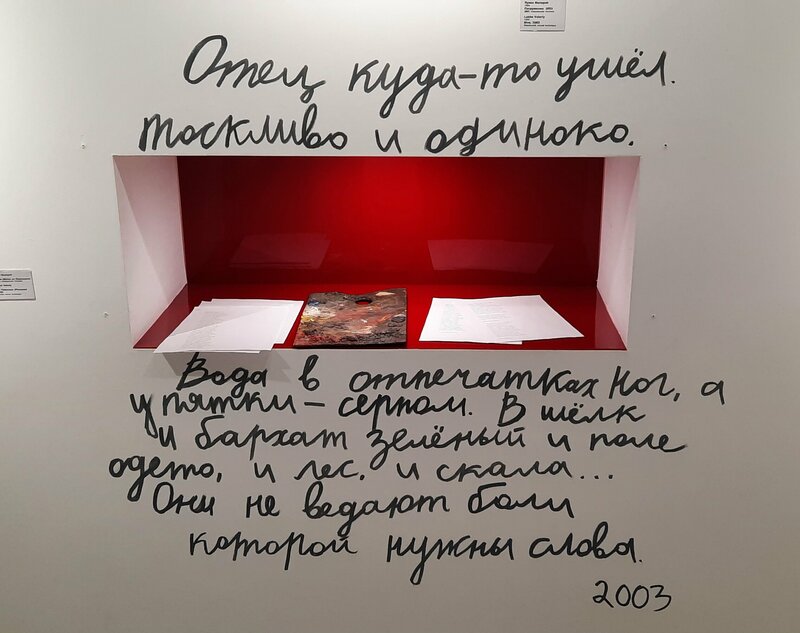 Отец куда-то ушёл.
Тоскливо и одиноко.
Вода в отпечатках ног, а
у пятки – серпом. В шёлк
и бархат зелёный и поле
одето, и лес, и скала...
Они не ведают боли
которой нужны слова.
2003